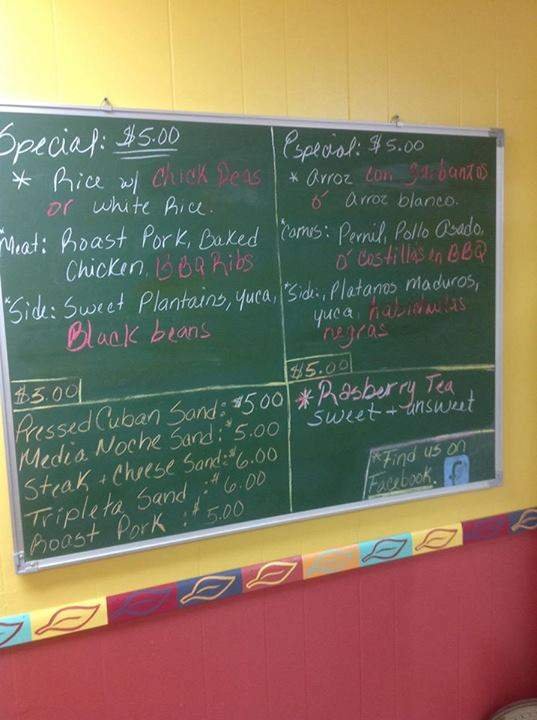 Special: $5.00
* Rice w/ Chick Peas
or white Rice.
*Meat: Roast Pork, Baked
Chicken, BBQ Ribs
*Side: Sweet Plantains, yuca,
Black beans
$5.00
Especial: $5.00
* Arroz con garbanzos
ó arroz blanco.
*Carnes: Pernil, Pollo Asado,
ó costillas en BBQ
*Side:, Platanos maduros,
yuca, habichuelas
negras
$5.00
Pressed Cuban Sand: $5.00
Media Noche Sand: $5.00
Steak + Cheese Sand: $6.00
Tripleta Sand,: $6.00
Roast Pork : $5.00
*Rasberry Tea
sweet + unsweet
*Find us on
Facebook. f